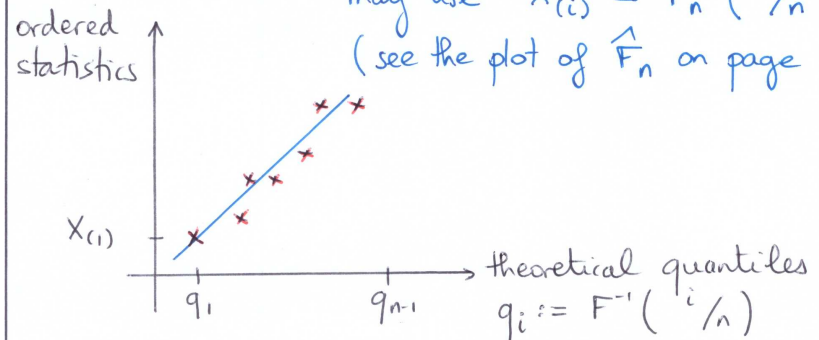 may use X(i) = F̂n ( i/n
ordered
statistics
(see the plot of F̂n on page
X(1)
q1
qn-1
theoretical quantiles
qi := F⁻¹( i/n )